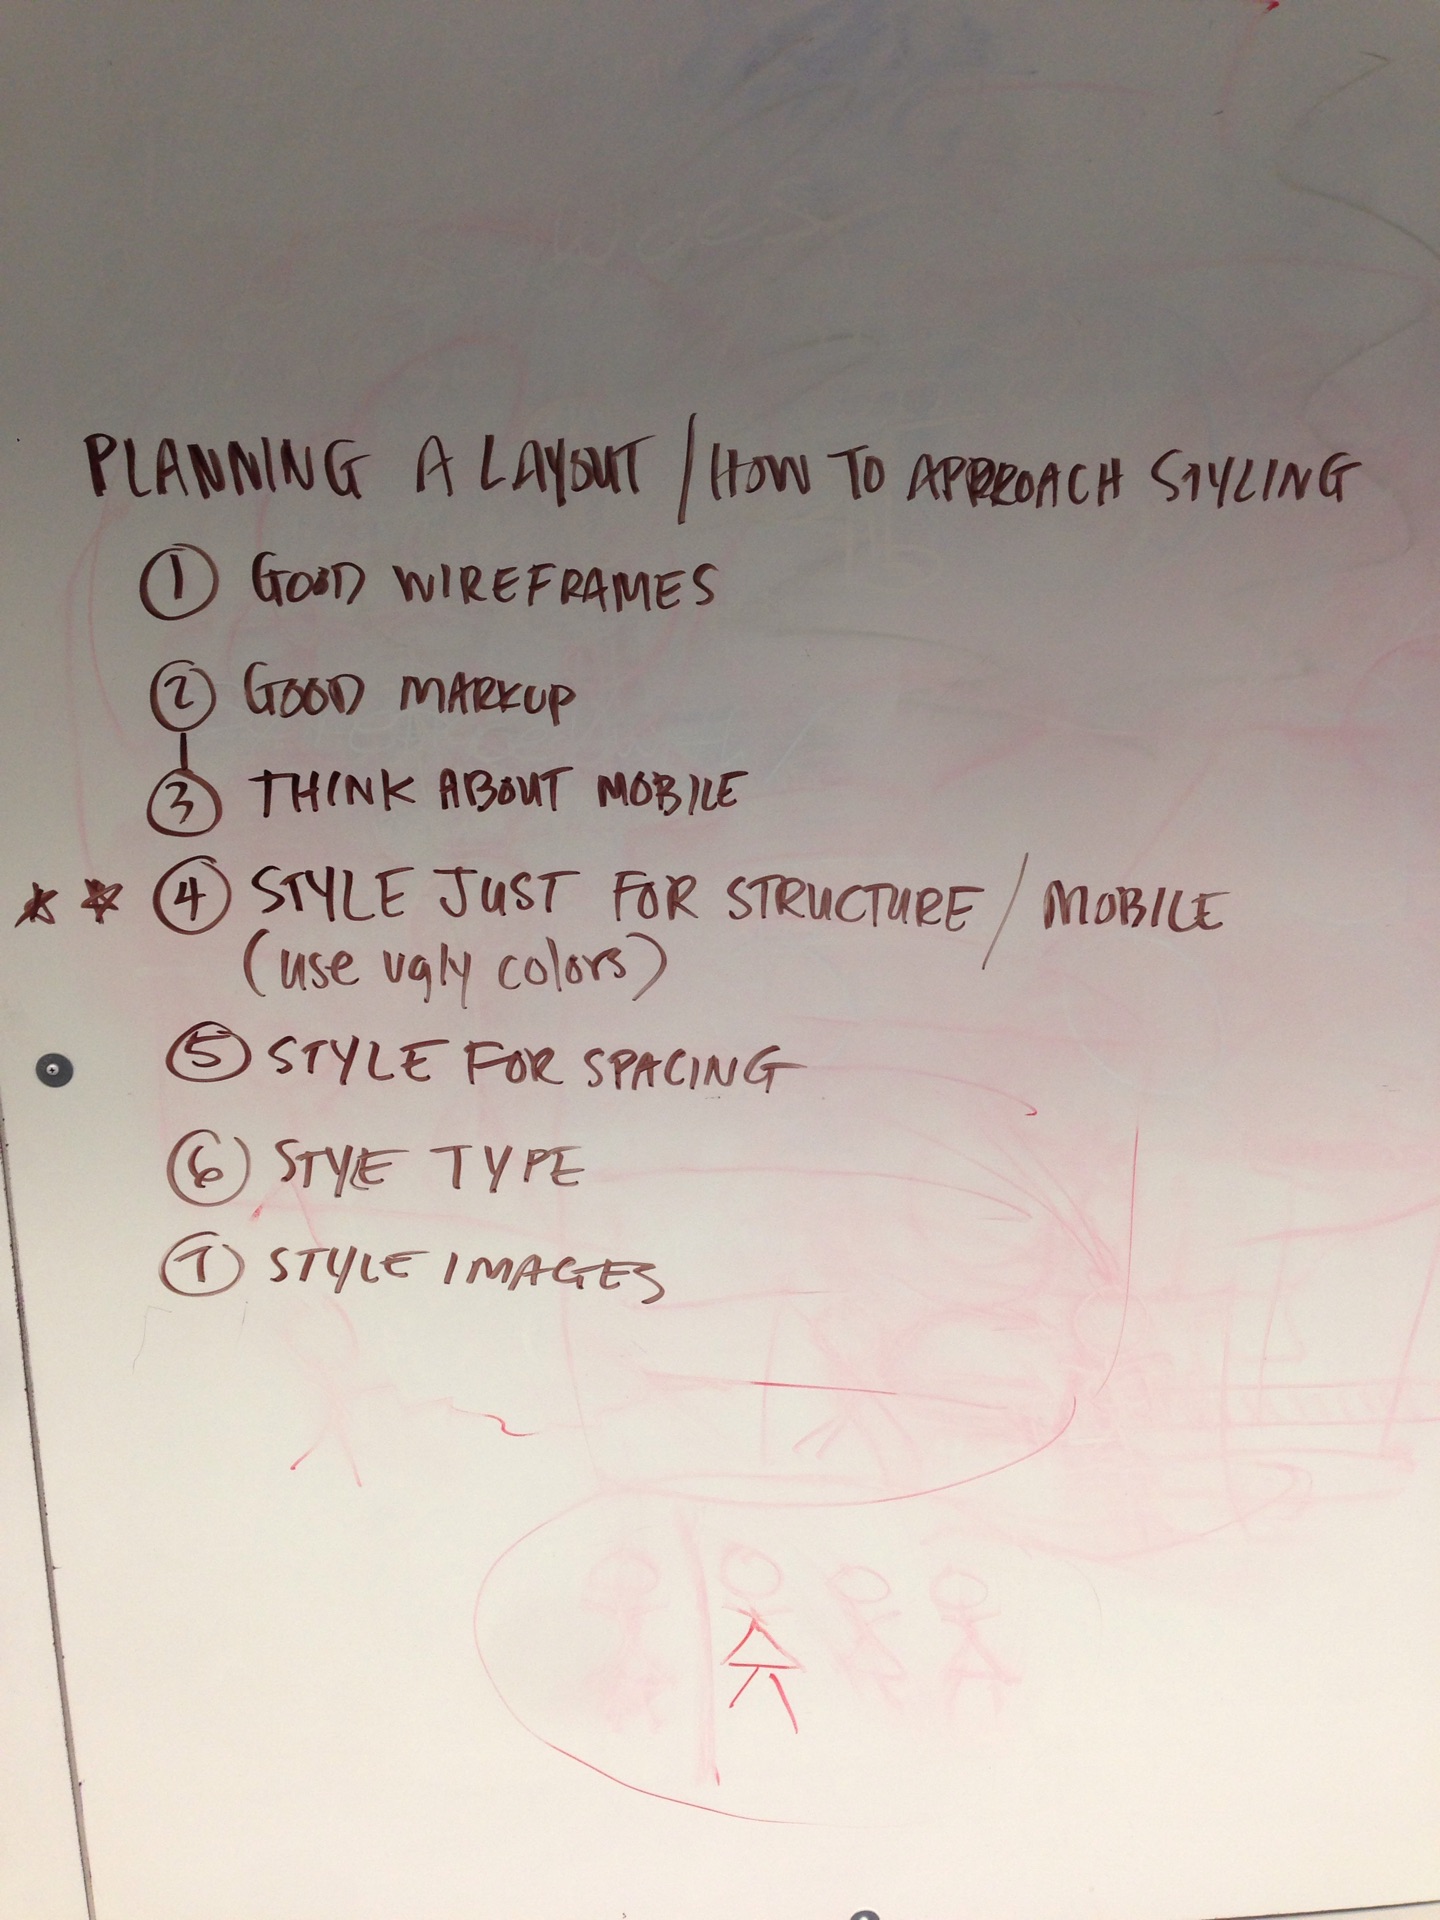 PLANNING A LAYOUT / HOW TO APPROACH STYLING
① GOOD WIREFRAMES
② GOOD MARKUP
③ THINK ABOUT MOBILE
★ ★ ④ STYLE JUST FOR STRUCTURE / MOBILE
(use ugly colors)
⑤ STYLE FOR SPACING
⑥ STYLE TYPE
⑦ STYLE IMAGES